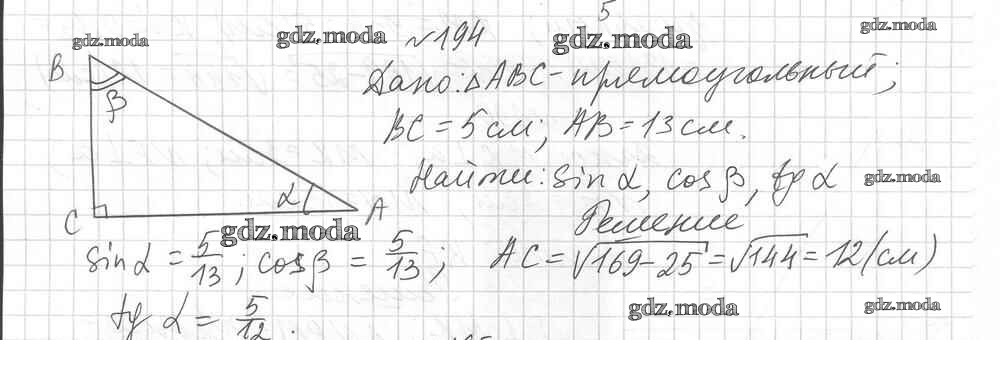 5
gdz.moda gdz.moda №194 gdz.moda gdz.moda
B Дано: △ABC - прямоугольный;
β
BC = 5 см; AB = 13 см.
Найти: sin α, cos β, tg α gdz.moda
α
C A Решение
gdz.moda
sin α = 5/13; cos β = 5/13; AC = √169-25 = √144 = 12 (см)
gdz.moda gdz.moda
tg α = 5/12.